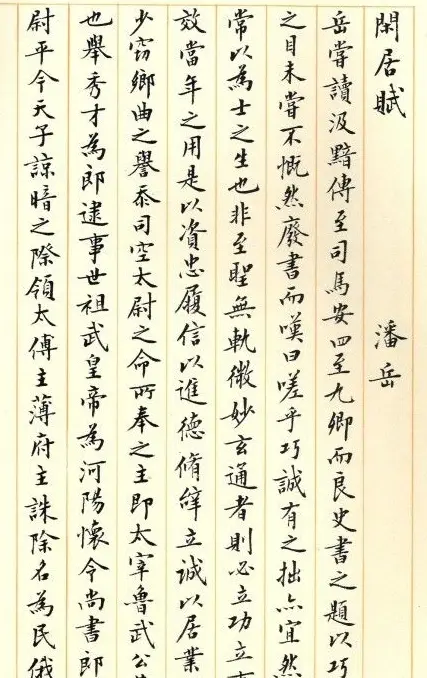 閑居賦 潘岳
岳嘗讀汲黯傳至司馬安四至九卿而良史書之題以巧
之目未嘗不慨然廢書而嘆曰嗟乎巧誠有之拙亦宜然
常以為士之生也非至聖無軌微妙玄通者則必立功立
效當年之用是以資忠履信以進德脩辭立誠以居業
少竊鄉曲之譽忝司空太尉之命所奉之主即太宰魯武公
也舉秀才為郎逮事世祖武皇帝為河陽懷令尚書郎
尉平今天子諒暗之際領太傅主薄府主誅除名為民俄